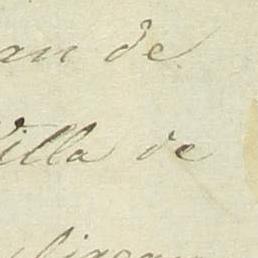 an de
Villa de